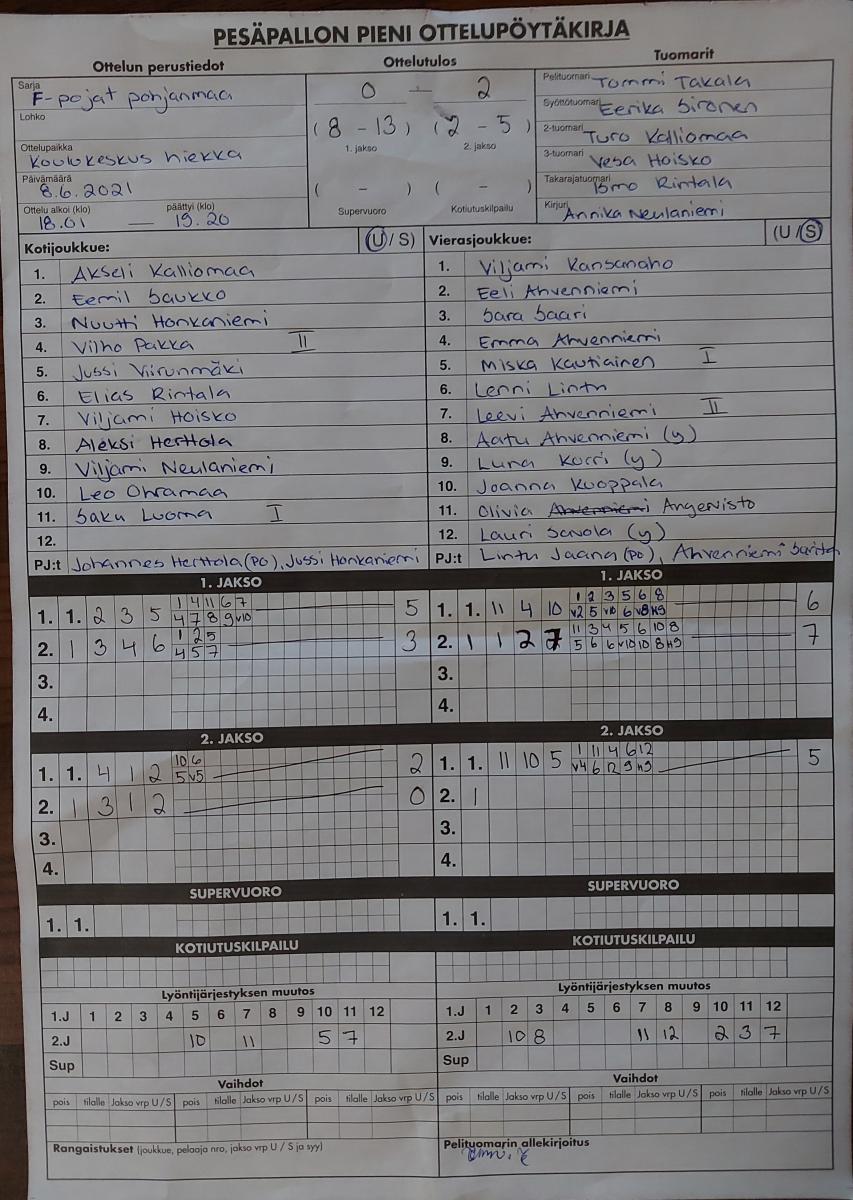 PESÄPALLON PIENI OTTELUPÖYTÄKIRJA
Ottelun perustiedot Ottelutulos Tuomarit
Sarja F-pojat pohjanmaa
Lohko
Ottelupaikka Koulukeskus hiekka
Päivämäärä 8.6.2021
Ottelu alkoi (klo) päättyi (klo)
18.01 — 19.20
0 — 2
(8 - 13) (2 - 5)
1. jakso 2. jakso
( - ) ( - )
Supervuoro Kotiutuskilpailu
Pelituomari Tommi Takala
Syöttötuomari Eerika Sironen
2-tuomari Turo Kalliomaa
3-tuomari Vesa Hoisko
Takarajatuomari Ismo Rintala
Kirjuri Annika Neulaniemi
Kotijoukkue: (U / S)
1. Akseli Kalliomaa
2. Eemil Saukko
3. Nuutti Honkaniemi
4. Vilho Pakka II
5. Jussi Viirunmäki
6. Elias Rintala
7. Viljami Hoisko
8. Aleksi Herttola
9. Viljami Neulaniemi
10. Leo Ohramaa
11. Saku Luoma I
12.
PJ:t Johannes Herttola (PO), Jussi Honkaniemi
Vierasjoukkue: (U / S)
1. Viljami Kansanaho
2. Eeli Ahvenniemi
3. Sara Saari
4. Emma Ahvenniemi
5. Miska Kautiainen I
6. Lenni Lintu
7. Leevi Ahvenniemi II
8. Aatu Ahvenniemi (y)
9. Luna Korri (y)
10. Joanna Kuoppala
11. Olivia Ahvenniemi Angervisto
12. Lauri Savola (y)
PJ:t Lintu Jaana (PO), Ahvenniemi
1. JAKSO
1. 1. 2 3 5 1 4 11 6 7 5
4 7 8 9 v10
2. 1 3 4 6 1 2 5 3
4 5 7
3.
4.
1. JAKSO
1. 1. 11 4 10 1 2 3 5 6 8 6
v2 5 v10 6 v8 h9
2. 1 1 2 7 11 3 4 5 6 10 8 7
5 6 6 v10 10 8 h9
3.
4.
2. JAKSO
1. 1. 4 1 2 10 6 2
5 v5
2. 1 3 1 2 0
3.
4.
2. JAKSO
1. 1. 11 10 5 1 11 4 6 12 5
v4 6 12 9 h9
2. 1
3.
4.
SUPERVUORO SUPERVUORO
1. 1. 1. 1.
KOTIUTUSKILPAILU KOTIUTUSKILPAILU
Lyöntijärjestyksen muutos
1.J 1 2 3 4 5 6 7 8 9 10 11 12
2.J 10 11 5 7
Sup
Lyöntijärjestyksen muutos
1.J 1 2 3 4 5 6 7 8 9 10 11 12
2.J 10 8 11 12 2 3 7
Sup
Vaihdot
pois tilalle Jakso vrp U / S pois tilalle Jakso vrp U / S pois tilalle Jakso vrp U / S
Vaihdot
pois tilalle Jakso vrp U / S pois tilalle Jakso vrp U / S pois tilalle Jakso vrp U / S
Rangaistukset (joukkue, pelaaja nro, jakso vrp U / S ja syy)
Pelituomarin allekirjoitus